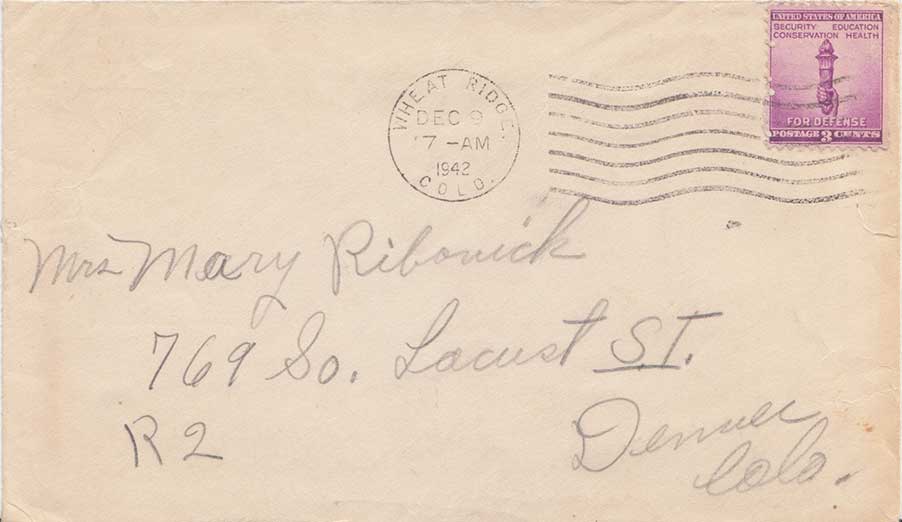 UNITED STATES OF AMERICA
SECURITY EDUCATION
CONSERVATION HEALTH
FOR DEFENSE
POSTAGE 3 CENTS
WHEAT RIDGE.
DEC 9
7-AM
1942
COLO.
Mrs Mary Ribovick
769 So. Locust ST.
R2
Denver
Colo.